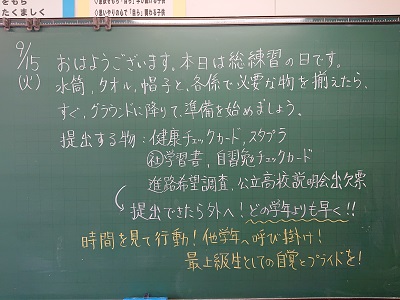 をもち
たくましく
◎夢や志をもち「自ら」学びぬく子供
◎思いやりの心で「自ら」関わる子供
9/15
(火)
おはようございます。本日は総練習の日です。
水筒、タオル、帽子と、各係で必要な物を揃えたら、
すぐ、グラウンドに降りて、準備を始めましょう。
提出する物:健康チェックカード、スタプラ
㊓学習書、自習勉チェックカード
進路希望調査、公立高校説明会出欠票
提出できたら外へ!どの学年よりも早く!!
時間を見て行動!他学年へ呼び掛け!
最上級生としての自覚とプライドを!